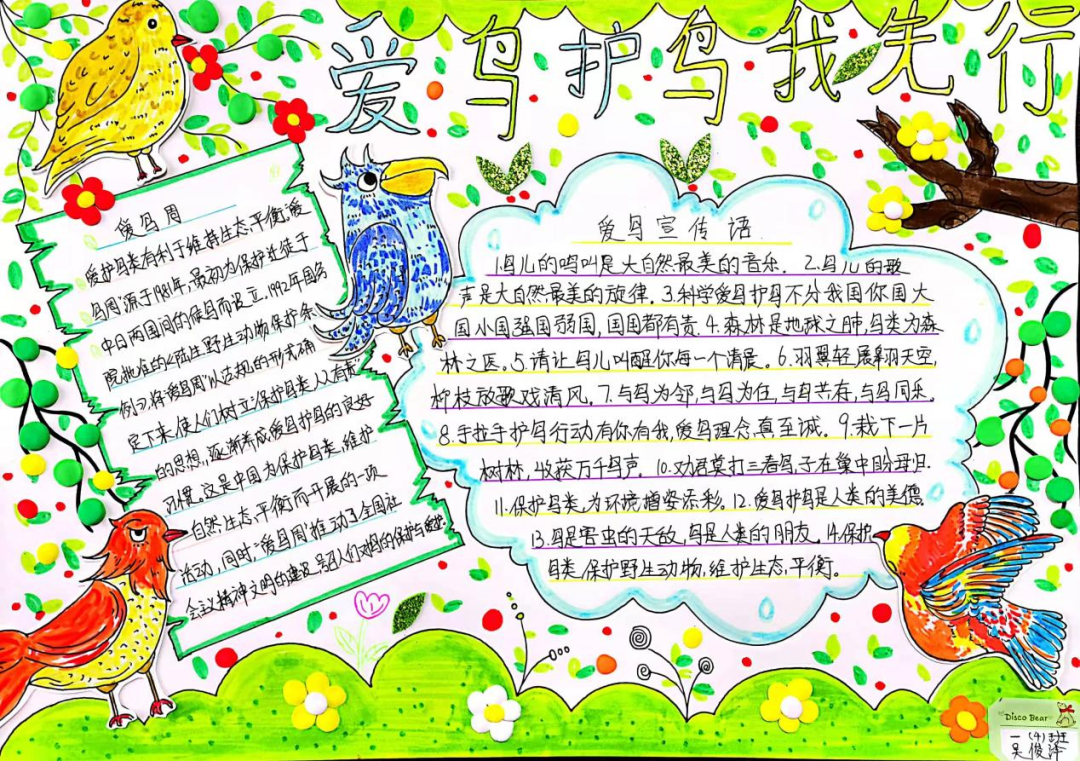 爱鸟护鸟我先行
爱鸟周
爱护鸟类有利于维持生态平衡,"爱
鸟周"源于1981年,最初为保护迁徙于
中日两国间的候鸟而设立.1992年国务
院批准的《陆生野生动物保护条
例》将"爱鸟周"以法规的形式确
定下来,使人们树立保护鸟类,人人有责
的思想,逐渐养成爱鸟护鸟的良好
习惯。这是中国为保护鸟类,维护
自然生态平衡而开展的一项
活动,同时,"爱鸟周"推动了全国社
会议精神文明的建设,号召人们对鸟的保护与
爱鸟宣传语
1.鸟儿的鸣叫是大自然最美的音乐. 2.鸟儿的歌
声是大自然最美的旋律.3.科学爱鸟护鸟不分我国你国大
国小国强国弱国,国国都有责.4.森林是地球之肺,鸟类为森
林之医。5.请让鸟儿叫醒你每一个清晨。6.羽翼轻展翱天空,
柳枝放歌戏清风。7.与鸟为邻,与鸟为住,与鸟共存,与鸟同乐。
8.手拉手护鸟行动有你有我,爱鸟理念真至诚。9.栽下一片
树林,收获万千鸟声。10.劝君莫打三春鸟,子在巢中盼母归.
11.保护鸟类,为环境增姿添彩。12.爱鸟护鸟是人类的美德.
13.鸟是害虫的天敌,鸟是人类的朋友。14.保护
鸟类,保护野生动物,维护生态平衡。
Disco Bear
一(4)班
吴俊泽